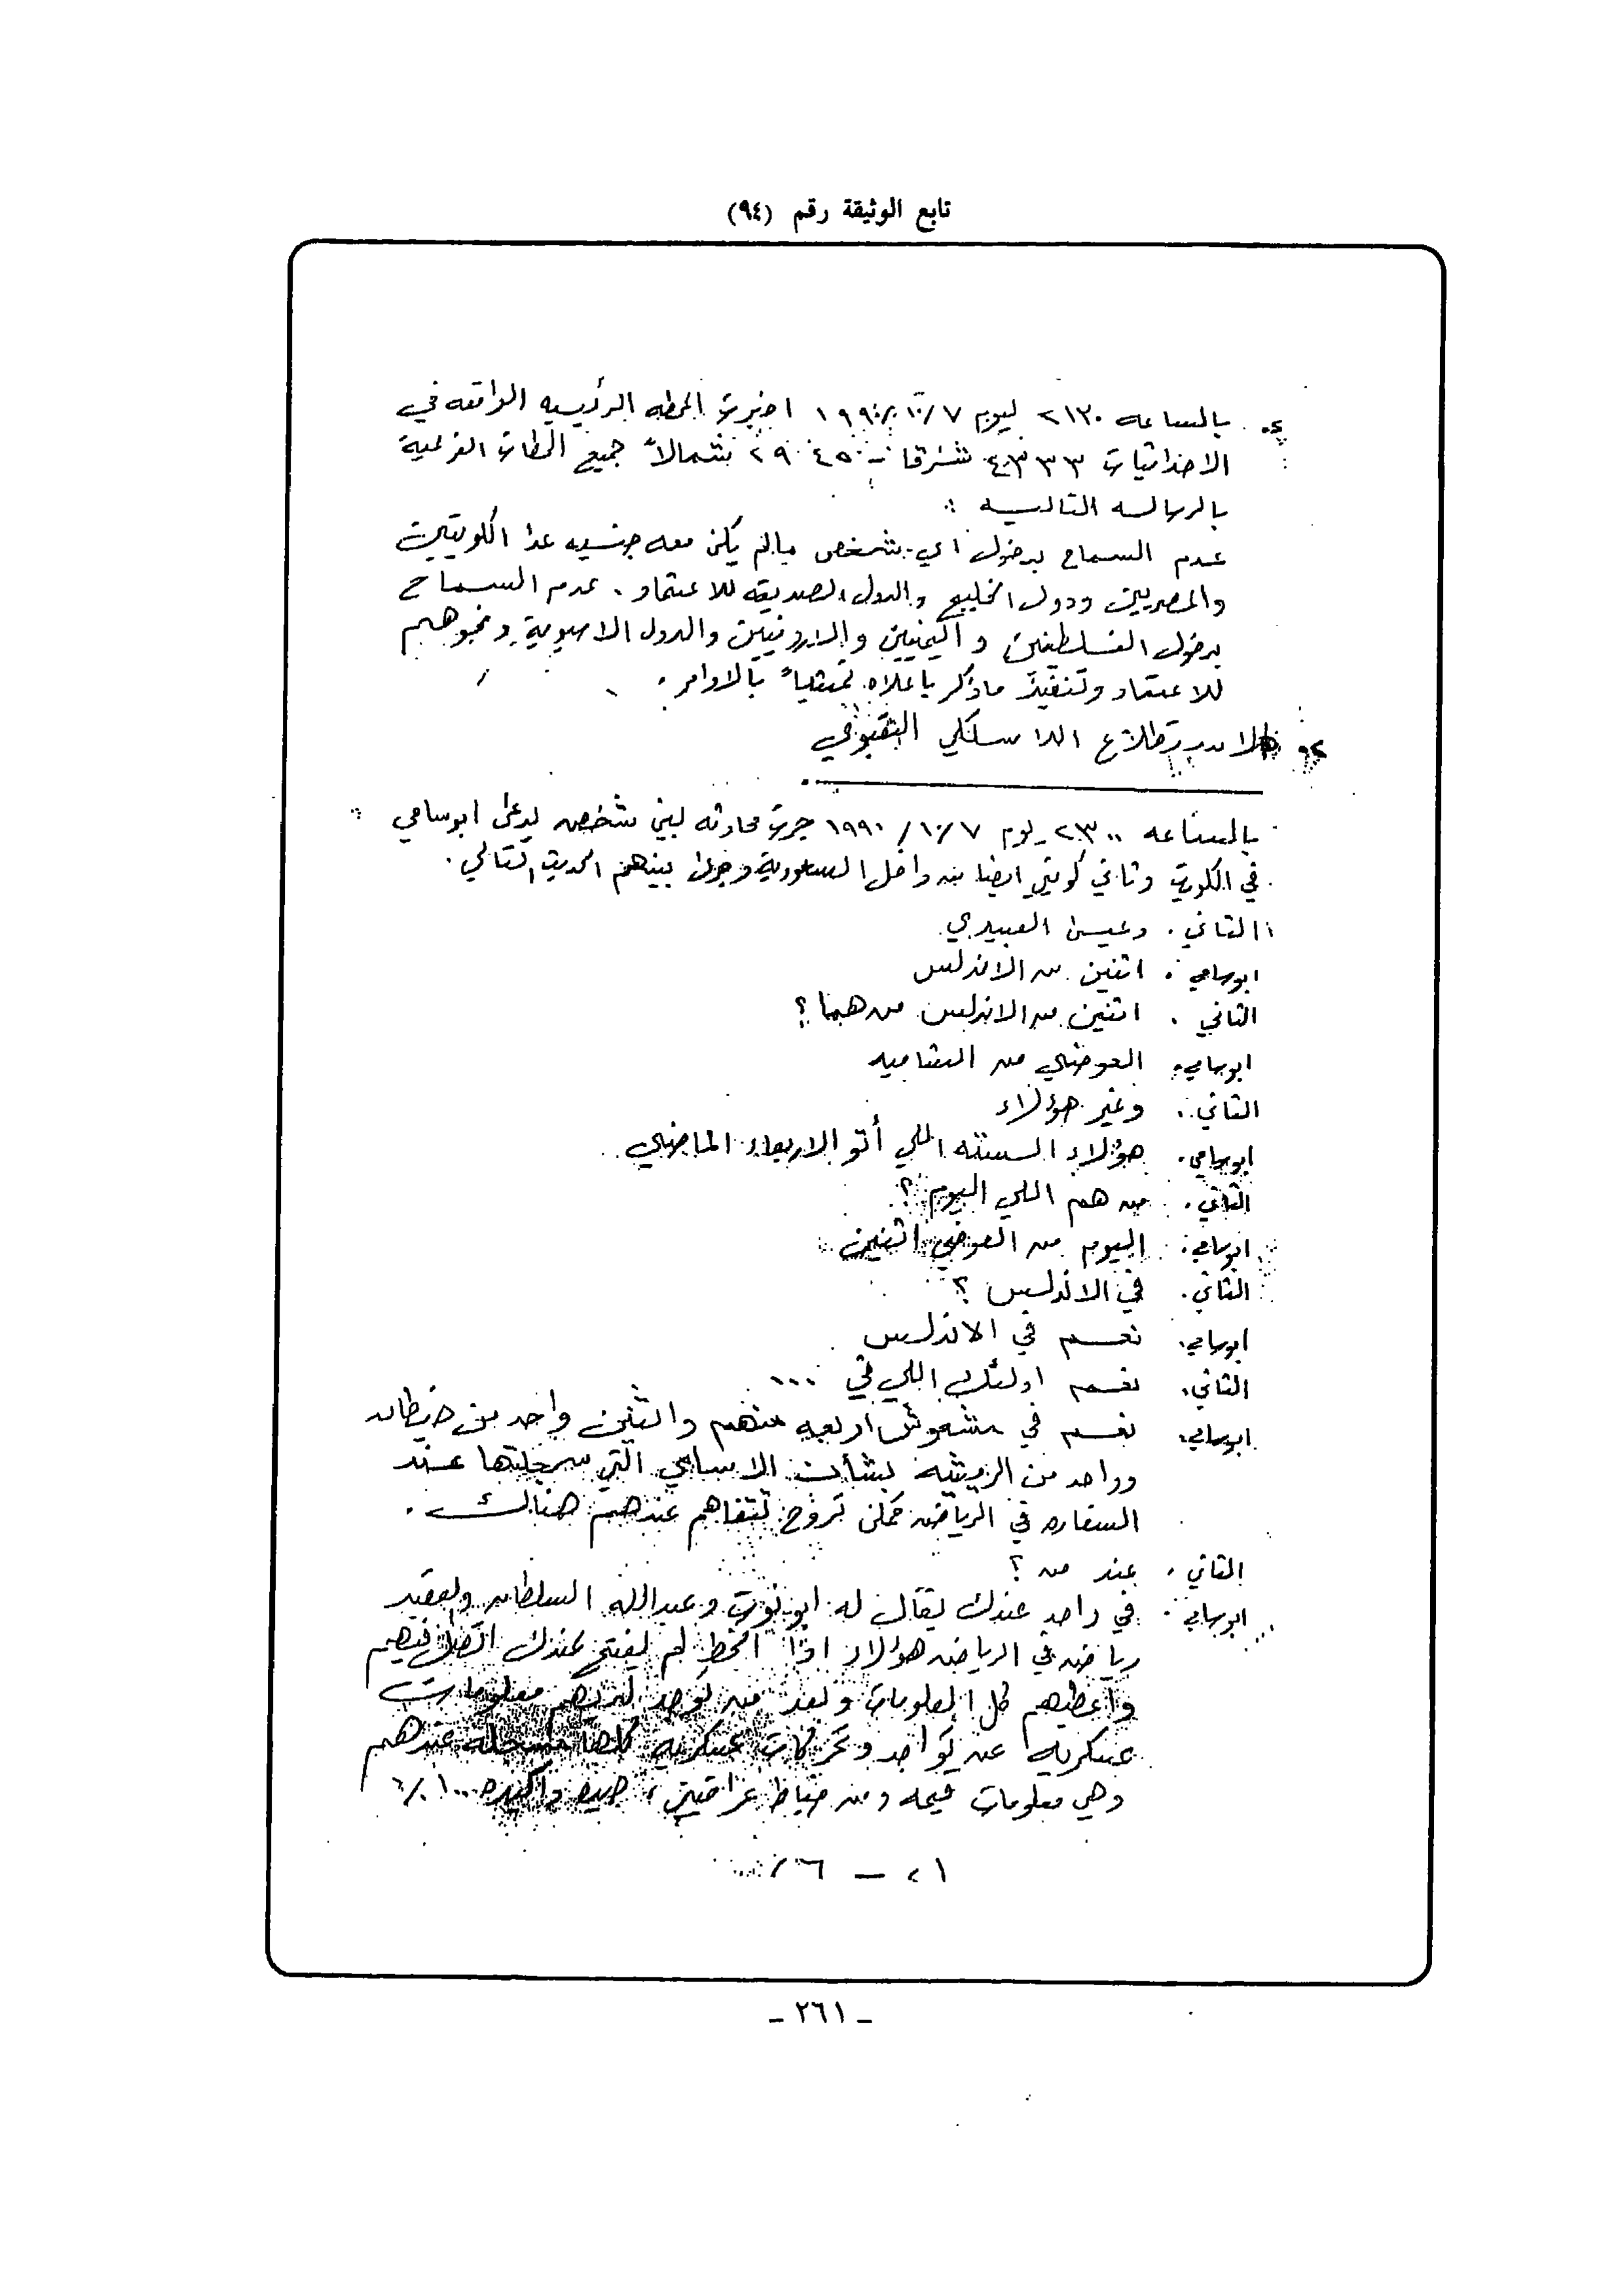 تابع الوثيقة رقم (٩٤)
بالساعه ٢١٣٠ ليوم ١٠/٧/ ١٩٩٠ اخبرت المحطه الرئيسيه الواقعه في
الاحداثيات شرقا - ٢٩٠٤٥٠ شمالاً جميع المحطات الفرعية
بالرساله التاليه :
عدم السماح بدخول اي شخص مالم يكن معه جنسيه عدا الكويتيين
والمصريين ودول الخليج والدول الصديقه للاعتماد . عدم السماح
بدخول الفلسطينين واليمنيين والاردنيين والدول الاسيوية ونحوهم
للاعتماد وتنفيذ ماذكر باعلاه تمشياً بالاوامر .
٢. الاستطلاع اللاسلكي
بالساعه ٢٣٠٠ يوم ١٠/٧/ ١٩٩٠ جرت محادثه بين شخص يدعى ابوسامي
في الكويت وثاني كويتي ايضا من داخل السعودية وجرى بينهم الحديث التالي .
الثاني . وعيسى العبيدي
ابوسامي . اثنين من الاندلس
الثاني . اثنين من الاندلس من هما ؟
ابوسامي . العوضي من الشاميه
الثاني . وغير هؤلاء
ابوسامي . هؤلاء السته اللي أتو الاربعاء الماضي
الثاني . من هم اللي اليوم ؟
ابوسامي . اليوم من العوضي اثنين
الثاني . في الاندلس ؟
ابوسامي . نعم في الاندلس
الثاني . نعم اولئك اللي في ...
ابوسامي . نعم في اربعه منهم واثنين واحد من خيطان
وواحد من الرميثيه بشأن الاسامي التي سجلتها عند
السفاره في الرياض ممكن تروح تتفاهم عندهم هنالك .
الثاني . عند من ؟
ابوسامي . في واحد عندك يقال له ابو وعبدالله السلطان والعقيد
رياض في الرياض هؤلاء اذا الخط لم يفتح عندك اتصل فيهم
واعطيهم كل المعلومات وبعد من توجد لديهم معلومات
عسكريه عن تواجد وتحركات عسكريه كلها مسجله عندهم
وهي معلومات قيمه ومن ضباط عراقيين ، جيده واكيده ١٠٠ ٪
٢١ - ٦
- ٢٦١ -